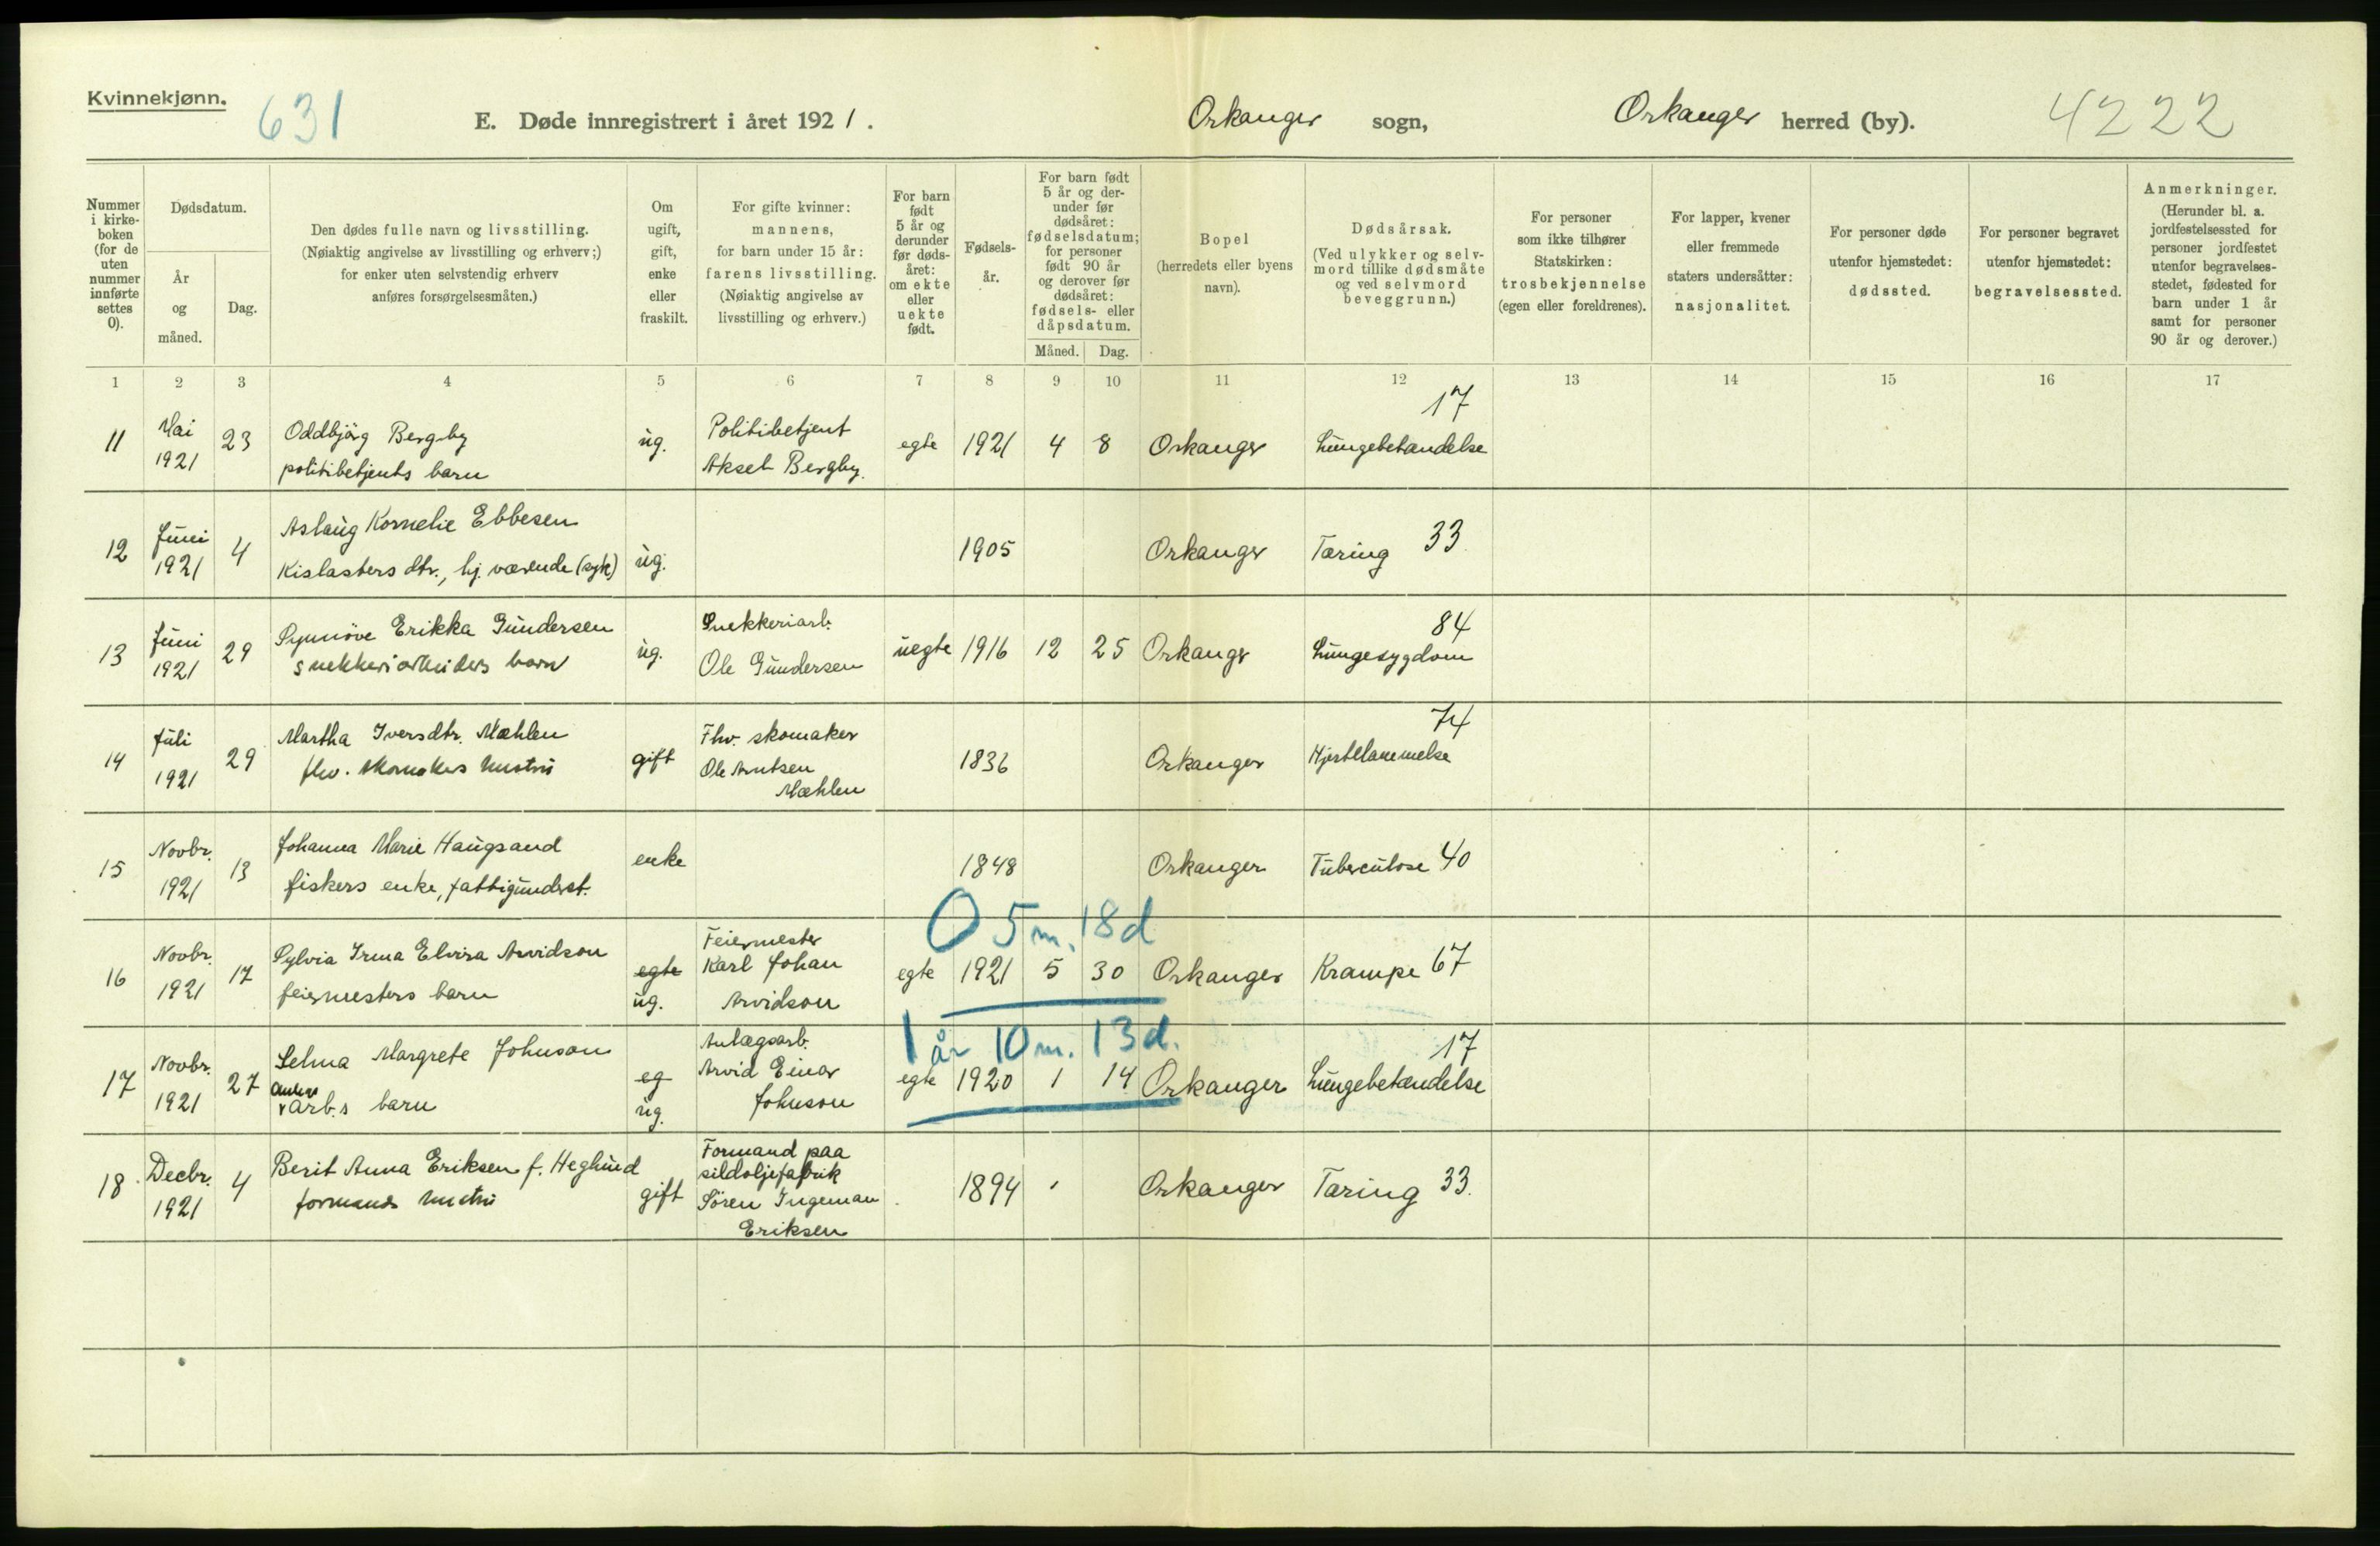 Kvinnekjønn.
631
E. Døde innregistrert i året 1921.
Orkanger sogn,
Orkanger herred (by).
4222
Nummer i kirke-boken (for de uten nummer innførte settes 0).
Dødsdatum.
År og måned.
Dag.
Den dødes fulle navn og livsstilling.
(Nøiaktig angivelse av livsstilling og erhverv;)
for enker uten selvstendig erhverv
anføres forsørgelsesmåten.)
Om ugift, gift, enke eller fraskilt.
For gifte kvinner:
mannens,
for barn under 15 år:
farens livsstilling.
(Nøiaktig angivelse av
livsstilling og erhverv.)
For barn født 5 år og derunder før døds-året: om ekte eller uekte født.
Fødsels-år.
For barn født 5 år og der-under før dødsåret: fødselsdatum; for personer født 90 år og derover før dødsåret: fødsels- eller dåpsdatum.
Måned.
Dag.
Bopel
(herredets eller byens
navn).
Dødsårsak.
(Ved ulykker og selv-
mord tillike dødsmåte
og ved selvmord
beveggrunn.)
For personer
som ikke tilhører
Statskirken:
trosbekjennelse
(egen eller foreldrenes).
For lapper, kvener
eller fremmede
staters undersåtter:
nasjonalitet.
For personer døde
utenfor hjemstedet:
dødssted.
For personer begravet
utenfor hjemstedet:
begravelsessted.
Anmerkninger.
(Herunder bl. a.
jordfestelsessted for
personer jordfestet
utenfor begravelses-
stedet, fødested for
barn under 1 år
samt for personer
90 år og derover.)
1 2 3 4 5 6 7 8 9 10 11 12 13 14 15 16 17
17
11 Mai 1921 23 Oddbjörg Bergby politibetjents barn ug. Politibetjent Aksel Bergby. egte 1921 4 8 Orkanger Lungebetændelse
12 Juni 1921 4 Aslaug Kornelie Ebbesen Kislasters dtr., hj. værende (syk) ug. 1905 Orkanger Tæring 33
13 Juni 1921 29 Synnöve Erikka Gundersen snekkeriarbeiders barn ug. Snekkeriarb. Ole Gundersen uegte 1916 12 25 Orkanger Lungesygdom 84
14 Juli 1921 29 Martha Iversdtr. Mæhlen fhv. skomakers hustru gift Fhv. skomaker Ole Arntsen Mæhlen 1836 Orkanger Hjertelammelse 74
15 Novbr. 1921 13 Johanna Marie Haugsand fiskers enke, fattigunderst. enke 1848 Orkanger Tuberculose 40
0 5 m. 18 d
16 Novbr. 1921 17 Sylvia Irma Elvira Arvidson feiermesters barn egte ug. Feiermester Karl Johan Arvidson egte 1921 5 30 Orkanger Krampe 67
1 år 10 m. 13 d.
17 Novbr. 1921 27 Selma Margrete Johnson arb.s barn eg ug. Anlægsarb. Arvid Einar Johnson egte 1920 1 14 Orkanger Lungebetændelse 17
18 Decbr. 1921 4 Berit Anna Eriksen f. Heglund formands hustru gift Formand paa sildoljefabrik Sören Ingeman Eriksen 1894 Orkanger Tæring 33.